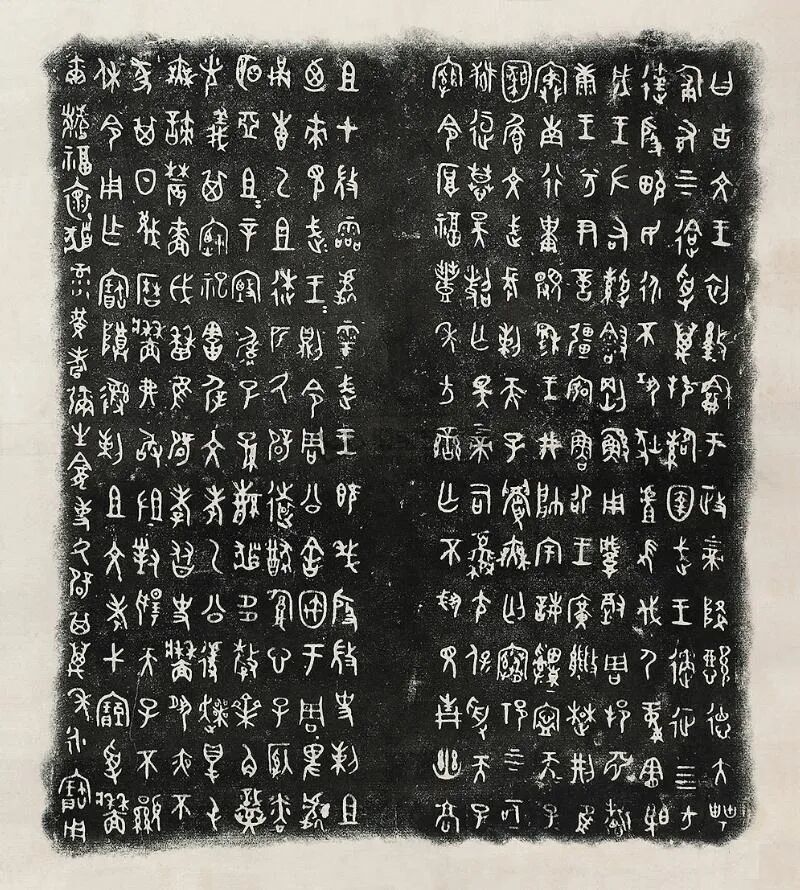 曰古文王初盭龢于政上帝降懿德大甹
匍有上下迨受萬邦圉武王遹征四方
達殷畯民永不巩狄虘髟伐尸童憲聖
成王左右綬會剛鯀用肇徹周邦淵哲
康王兮尹億疆宖魯卲王廣㪤楚荊唯
寏南行祗景穆王井帥宇誨申寧天子
圉饡文武長剌天子眉無匄祁上下
亟獄逗慕昊照亡斁上帝司夒尪保受天子
綰令厚福豐年方蠻亡不踝見青幽高
且才微霝處雩武王既殷微史剌且
迺來見武王則令周公舍宇于周卑處甬
叀乙且逨匹氒辟遠猷腹心子納粦
明亞且且辛毓子孫繁祓多釐櫅角熾
光義其禋祀害屖文考乙公遽爽得屯
無諫農嗇戉厤隹辟孝友史墻夙夜不
墜其日蔑曆墻弗敢沮對揚天子不顯
休令用乍寶尊彝剌且文考弋受墻
爾福懷祓彔黃耇彌生龕事氒辟其萬年永寶用